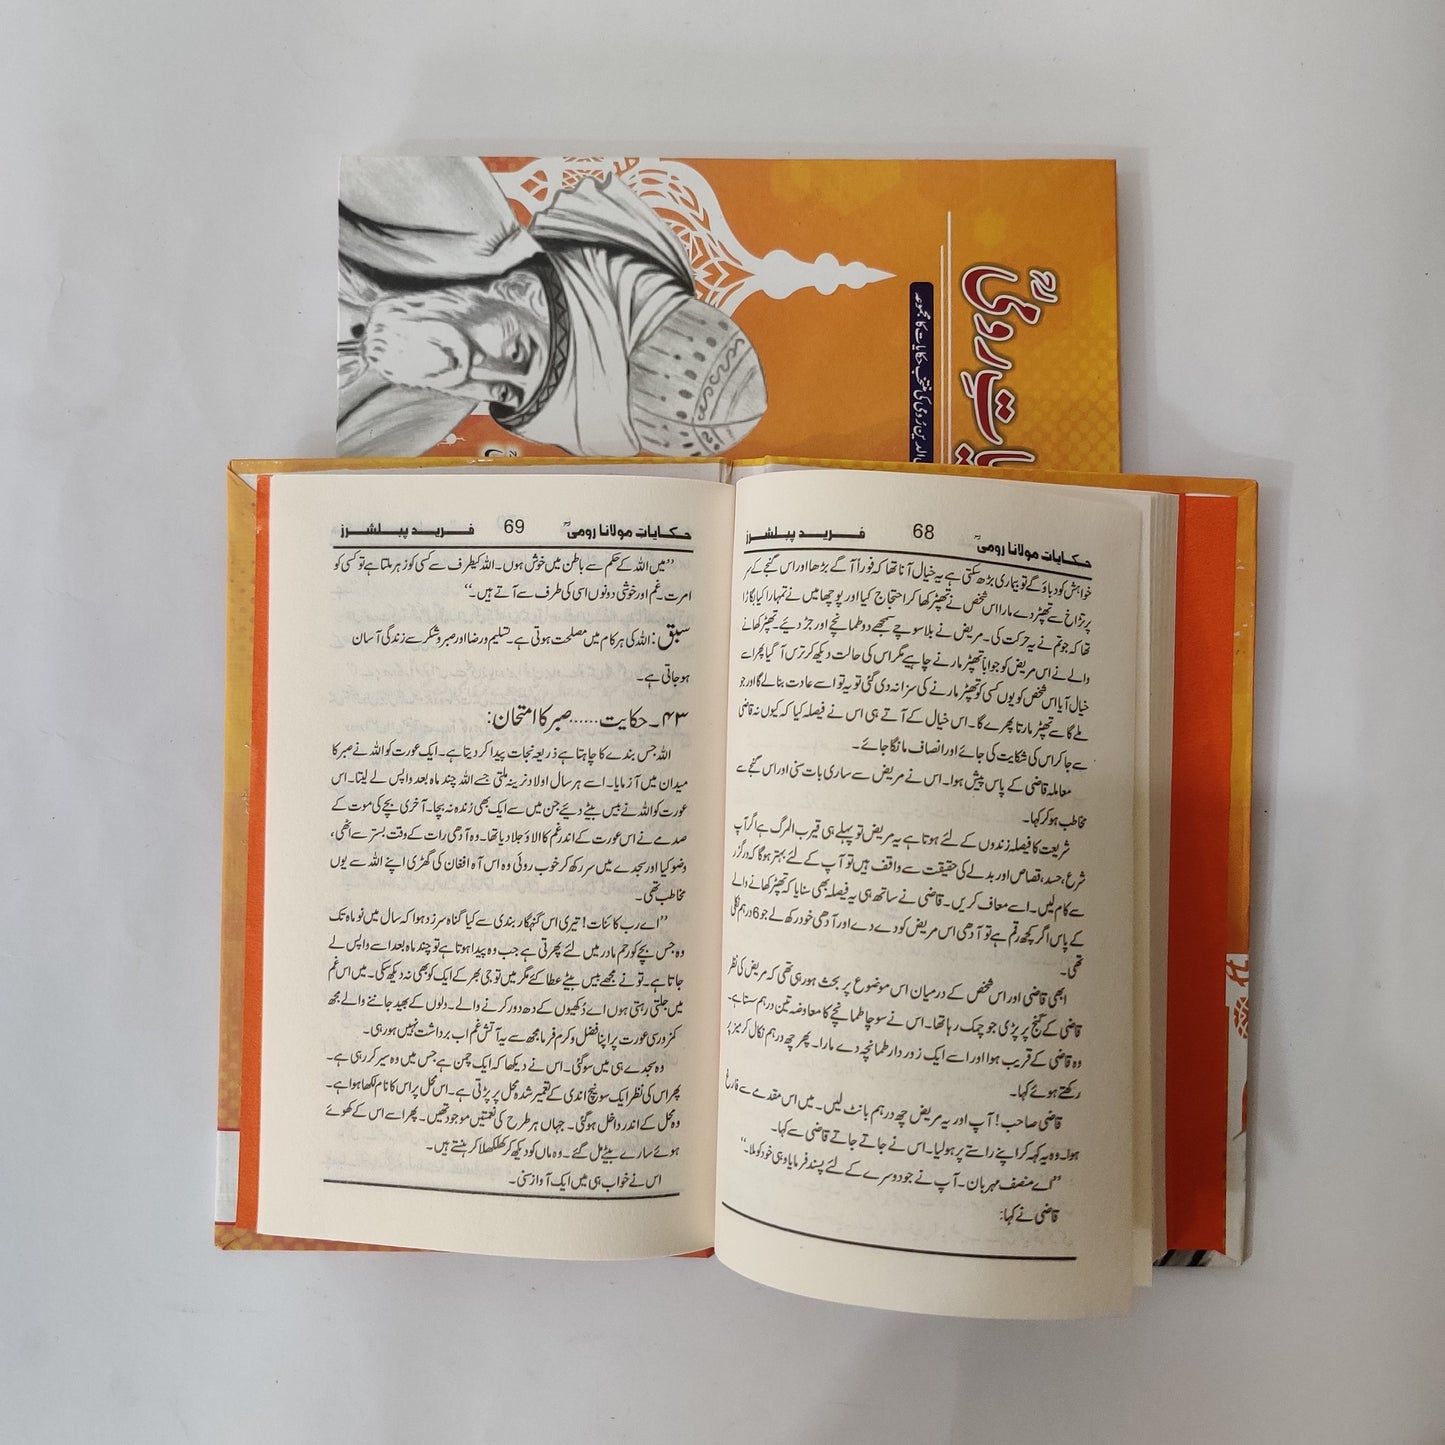 رومیؒ
منتخب حکایات کا مجموعہ
حکایاتِ مولانا رومیؒ 68 فرید پبلشرز
خواہش کو دباؤ گے تو بیماری بڑھ سکتی ہے یہ خیال آنا تھا کہ فوراً آگے بڑھا اور اس گنجے کے سر
پر تڑاخ سے تھپڑ دے مارا اس شخص نے تھپڑ کھا کر احتجاج کیا اور پوچھا میں نے تمہارا کیا بگاڑا
تھا کہ جو تم نے یہ حرکت کی۔ مریض نے بلا سوچے سمجھے دو طمانچے اور جڑ دیئے۔ تھپڑ کھانے
والے نے اس مریض کو جواباً تھپڑ مارنے چاہیے مگر اس کی حالت دیکھ کر ترس آ گیا پھر اسے
خیال آیا اس شخص کو یوں کسی کو تھپڑ مارنے کی سزا نہ دی گئی تو یہ تو اسے عادت بنا لے گا اور جو
ملے گا سے تھپڑ مارتا پھرے گا۔ اس خیال کے آتے ہی اس نے فیصلہ کیا کہ کیوں نہ قاضی
سے جا کر اس کی شکایت کی جائے اور انصاف مانگا جائے۔
معاملہ قاضی کے پاس پیش ہوا۔ اس نے مریض سے ساری بات سنی اور اس گنجے سے
مخاطب ہو کر کہا۔
شریعت کا فیصلہ زندوں کے لئے ہوتا ہے یہ مریض تو پہلے ہی قریب المرگ ہے اگر آپ
شرع، حسد، قصاص اور بدلے کی حقیقت سے واقف ہیں تو آپ کے لئے بہتر ہوگا کہ درگزر
سے کام لیں۔ اسے معاف کریں۔ قاضی نے ساتھ ہی یہ فیصلہ بھی سنایا کہ تھپڑ کھانے والے
کے پاس اگر کچھ رقم ہے تو آدھی اس مریض کو دے دے اور آدھی خود رکھ لے جو 6 درہم نکلی
تھی۔
ابھی قاضی اور اس شخص کے درمیان اس موضوع پر بحث ہو رہی تھی کہ مریض کی نظر
قاضی کے گنج پر پڑی جو چمک رہا تھا۔ اس نے سوچا طمانچے کا معاوضہ تین درہم سستا ہے۔
وہ قاضی کے قریب ہوا اور اسے ایک زور دار طمانچہ دے مارا۔ پھر چھ درہم نکال کر میز پر
رکھتے ہوئے کہا۔
قاضی صاحب! آپ اور یہ مریض چھ درہم بانٹ لیں۔ میں اس مقدمے سے فارغ
ہوا۔ وہ یہ کہہ کر اپنے راستے پر ہولیا۔ اس نے جاتے جاتے قاضی سے کہا۔
”اے منصف مہربان۔ آپ نے جو دوسرے کے لئے پسند فرمایا وہی خود کو ملا۔“
قاضی نے کہا:
حکایاتِ مولانا رومیؒ 69 فرید پبلشرز
”میں اللہ کے حکم سے باطن میں خوش ہوں۔ اللہ کیطرف سے کسی کو زہر ملتا ہے تو کسی کو
امرت۔ غم اور خوشی دونوں اسی کی طرف سے آتے ہیں۔“
سبق: اللہ کی ہر کام میں مصلحت ہوتی ہے۔ تسلیم و رضا اور صبر و شکر سے زندگی آسان
ہو جاتی ہے۔
۴۳۔ حکایت......صبر کا امتحان:
اللہ جس بندے کا چاہتا ہے ذریعہ نجات پیدا کر دیتا ہے۔ ایک عورت کو اللہ نے صبر کا
میدان میں آزمایا۔ اسے ہر سال اولاد نرینہ ملتی جسے اللہ چند ماہ بعد واپس لے لیتا۔ اس
عورت کو اللہ نے بیس بیٹے دیئے جن میں سے ایک بھی زندہ نہ بچا۔ آخری بچے کی موت کے
صدمے نے اس عورت کے اندر غم کا الاؤ جلا دیا تھا۔ وہ آدھی رات کے وقت بستر سے اٹھی،
وضو کیا اور سجدے میں سر رکھ کر خوب روئی وہ اس آہ افغان کی گھڑی اپنے اللہ سے یوں
مخاطب تھی۔
”اے رب کائنات! تیری اس گنہگار بندی سے کیا گناہ سرزد ہوا کہ سال میں نو ماہ تک
وہ جس بچے کو رحم مادر میں لئے پھرتی ہے جب وہ پیدا ہوتا ہے تو چند ماہ بعد اسے واپس لے
جاتا ہے۔ تو نے مجھے بیس بیٹے عطا کئے مگر میں تو جی بھر کے ایک کو بھی نہ دیکھ سکی۔ میں اس غم
میں جلتی رہتی ہوں اے دُکھیوں کے دکھ دور کرنے والے۔ دلوں کے بھید جاننے والے مجھ
کمزور سی عورت پر اپنا فضل و کرم فرما مجھ سے یہ آتش غم اب برداشت نہیں ہو رہی۔
وہ سجدے ہی میں سو گئی۔ اس نے دیکھا کہ ایک چمن ہے جس میں وہ سیر کر رہی ہے۔
پھر اس کی نظر ایک سونے چاندی کے تعمیر شدہ محل پر پڑتی ہے۔ اس محل پر اس کا نام لکھا ہوا ہے۔
وہ محل کے اندر داخل ہو گئی۔ جہاں ہر طرح کی نعمتیں موجود تھیں۔ پھر اسے اس کے کھوئے
ہوئے سارے بیٹے مل گئے۔ وہ ماں کو دیکھ کر کھلکھلا کر ہنستے ہیں۔
اس نے خواب ہی میں ایک آواز سنی۔